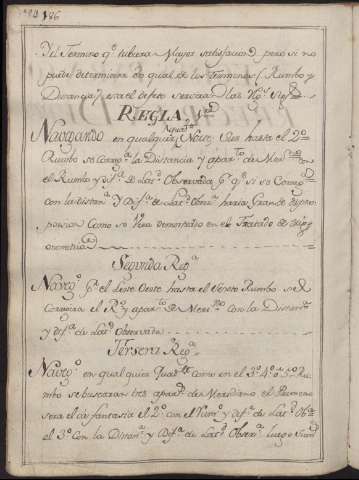 186
Del Termino qe tubiera Mayor satisfacion, pero si no
puede determinara en qual de los Terminos (Rumbo y
Distancia) esta el defeto servira las Rs sigtes
REGLA 1a
Navegando en qualquier Quadte Norte Sur hasta el 2o
Rumbo se Corregira la Distancia y apartto de Meridno con
el Rumbo y difa de Latd Observada pr qe si se Corrige
con la distana y Difa de Latd Obsera haria Grande despro
porcion Como se Vera demostrado en el Tratado de Trigo
nometria
Segunda Rega
Navego pr el Leste Oeste hasta el Sexto Rumbo se
Corregira el Ro y apartto de Merino con la Distana
y difa de Latd Observada
Tersera Rega
Navego en qualquier Quadte como en el 3o 4o o 5o Ru
mbo se buscaran tres apartos de Meridiano el Primero
sera el de fantasia el 2o con el Rumo y difa de Latd Oba
el 3o Con la Distana y Difa de Latd Obsera luego